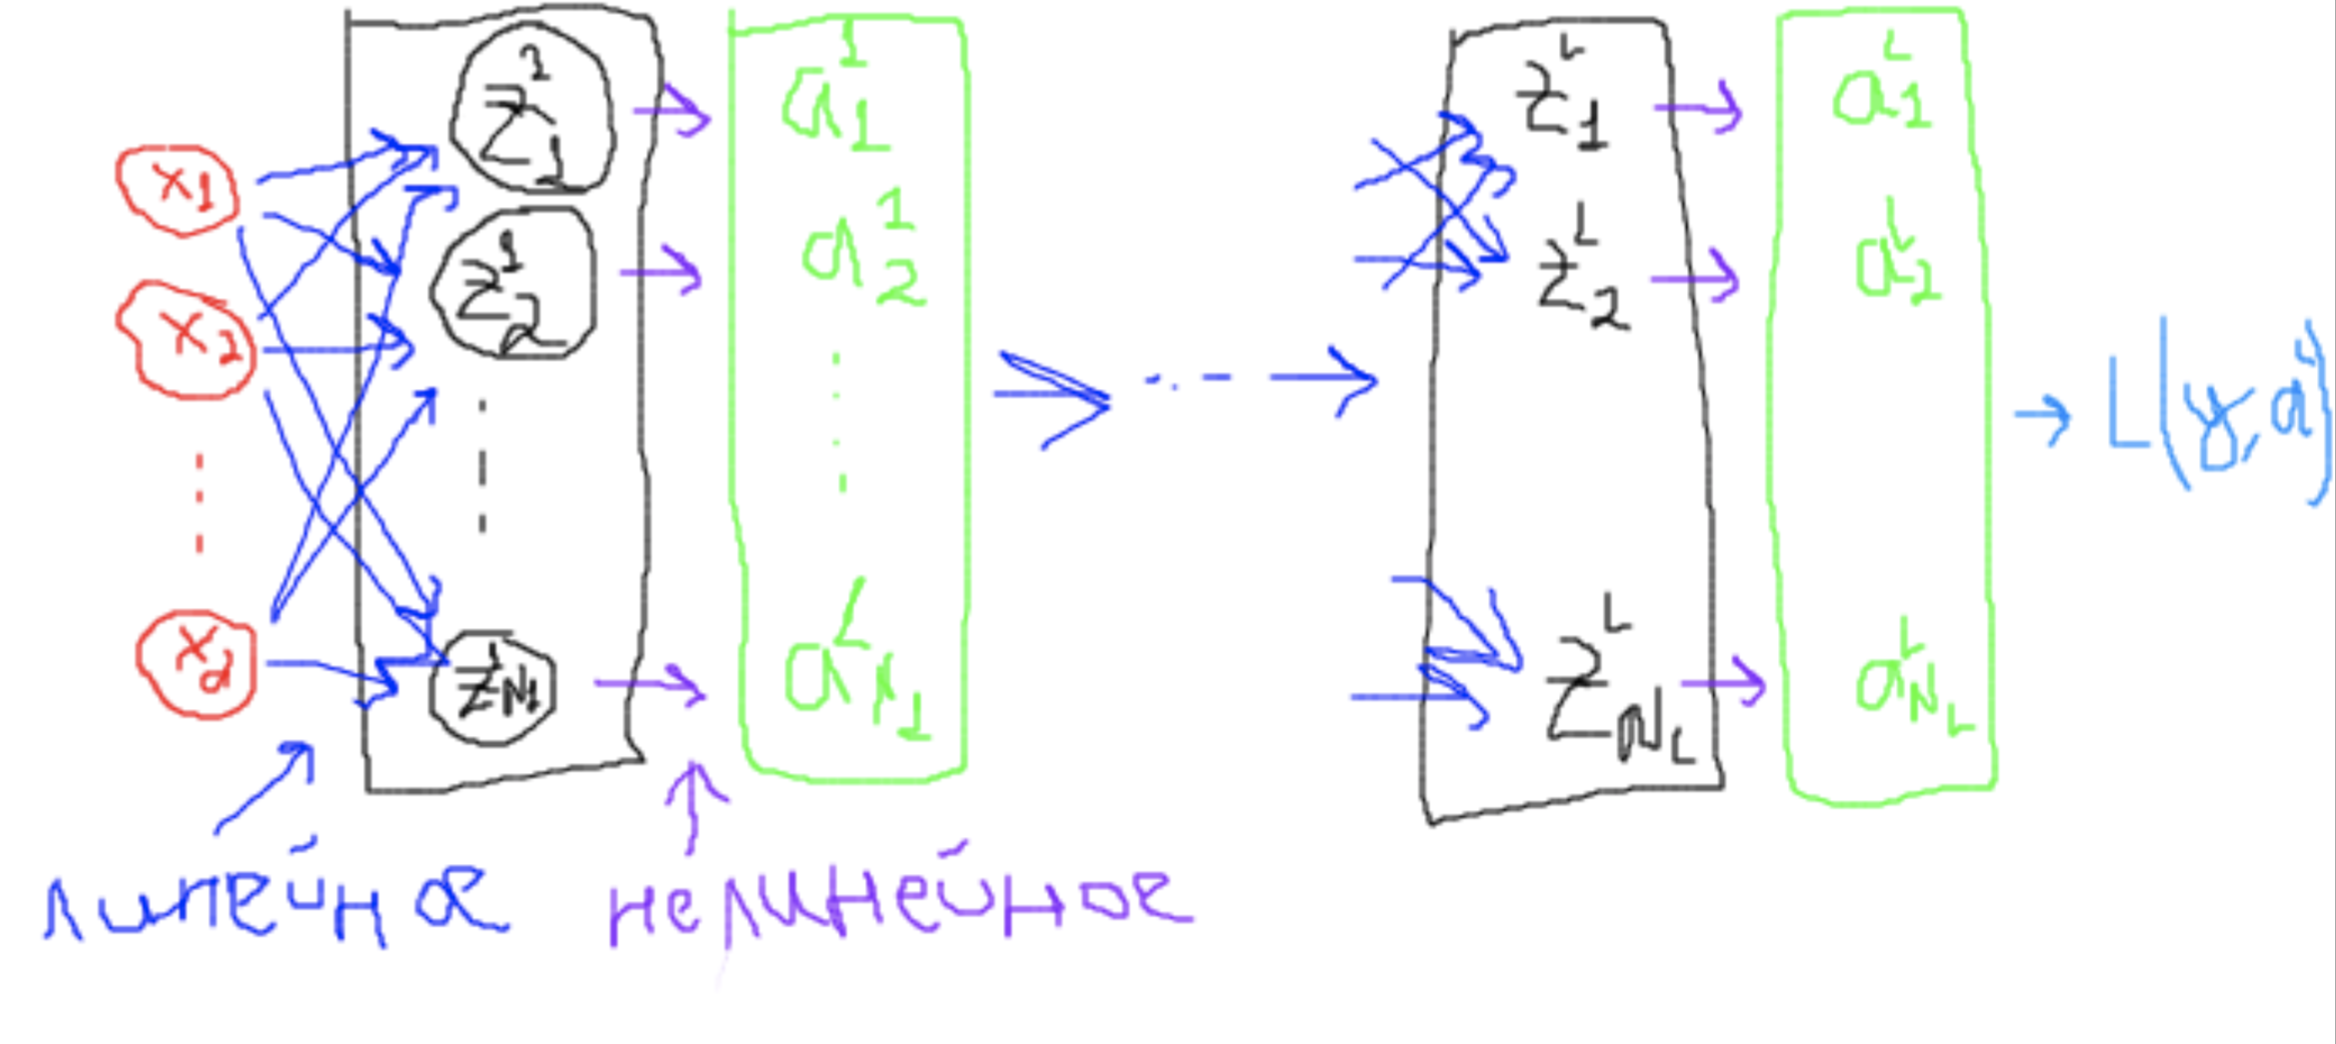 x₁
x₂
x_d
z₁¹
z₂¹
z_N₁¹
a₁¹
a₂¹
a_N₁^L
z₁^L
z₂^L
z_N_L^L
a₁^L
a₂^L
a_N_L^L
L(y, a^L)
линейное
нелинейное